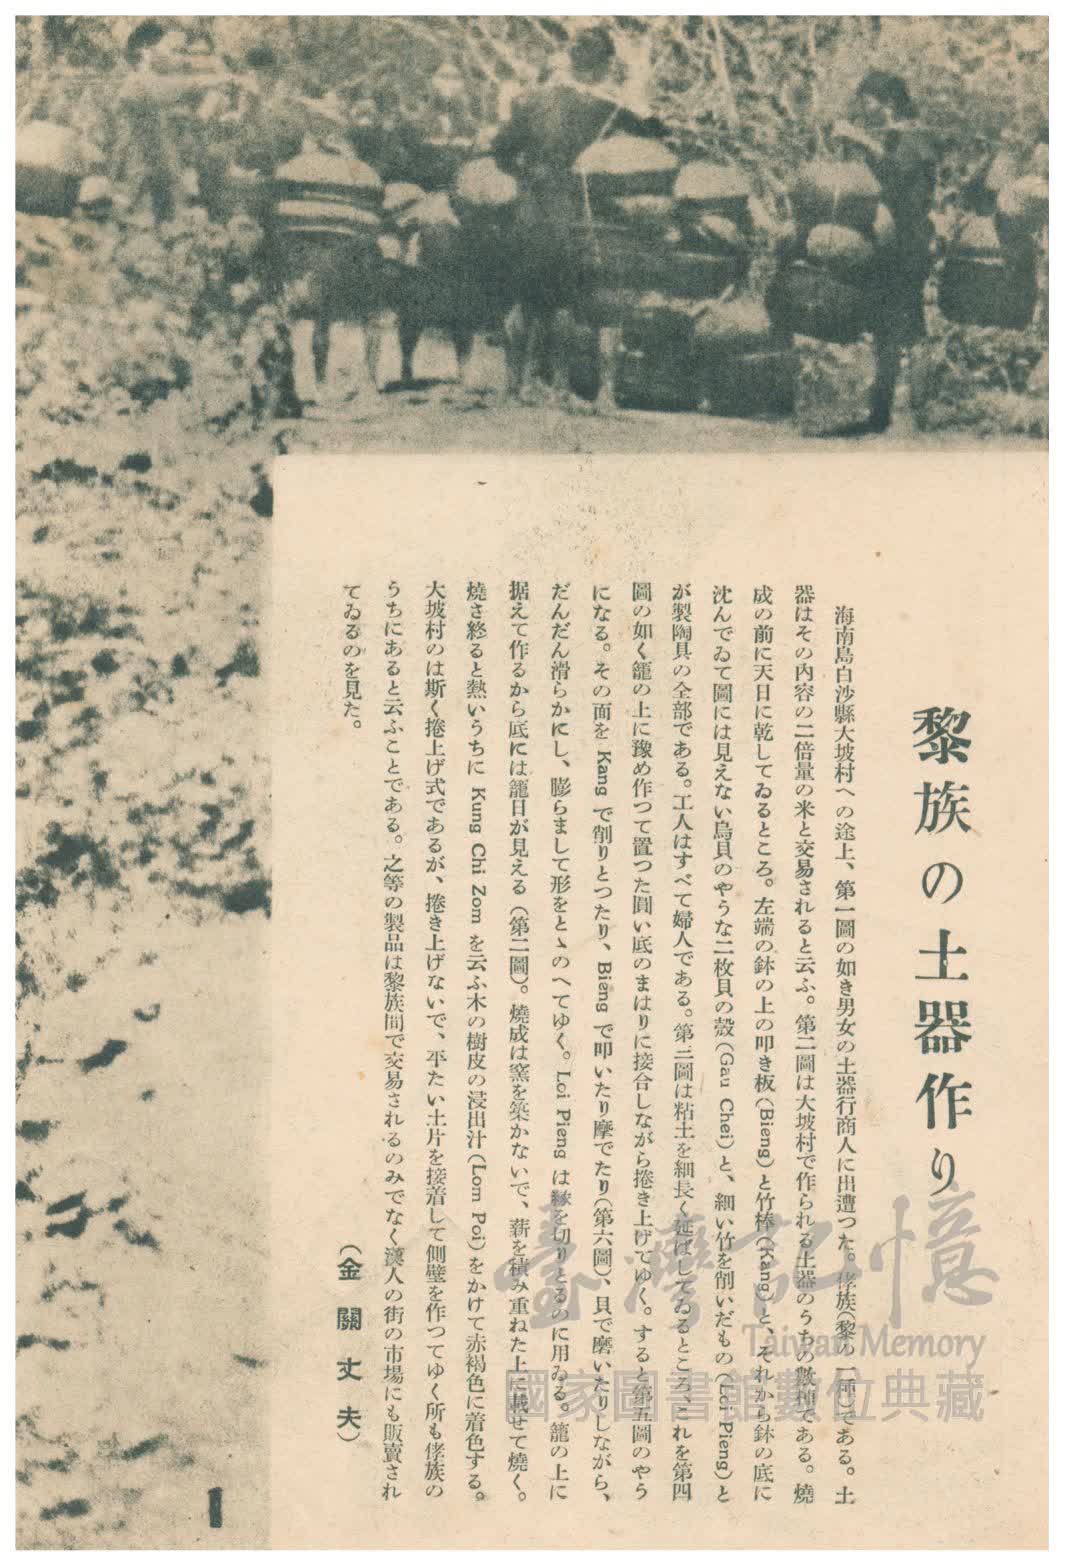 黎族の土器作り
海南島白沙縣大坡村への途上、第一圖の如き男女の土器行商人に出遭つた。侾族(黎の一種)である。土
器はその內容の二倍量の米と交易されると云ふ。第二圖は大坡村で作られる土器のうちの數種である。燒
成の前に天日に乾してゐるところ。左端の鉢の上の叩き板(Bieng)と竹棒(Kang)と、それから鉢の底に
沈んでゐて圖には見えない烏貝のやうな二枚貝の殼(Gau Chei)と、細い竹を削いだもの(Loi Pieng)と
が製陶具の全部である。工人はすべて婦人である。第三圖は粘土を細長く延ばしてゐるところ、これを第四
圖の如く籠の上に豫め作つて置つた圓い底のまはりに接合しながら捲き上げてゆく。すると第五圖のやう
になる。その面を Kang で削りとつたり、Bieng で叩いたり摩でたり(第六圖)、貝で磨いたりしながら、
だんだん滑らかにし、膨らまして形をとゝのへてゆく。Loi Pieng は緣を切りとるのに用ゐる。籠の上に
据えて作るから底には籠目が見える(第二圖)。燒成は窯を築かないで、薪を積み重ねた上に載せて燒く。
燒き終ると熱いうちに Kung Chi Zom を云ふ木の樹皮の浸出汁(Lom Poi)をかけて赤褐色に着色する。
大坡村のは斯く捲上げ式であるが、捲き上げないで、平たい土片を接着して側壁を作つてゆく所も侾族の
うちにあると云ふことである。之等の製品は黎族間で交易されるのみでなく漢人の街の市場にも販賣され
てゐるのを見た。
(金關丈夫)
1
臺灣記憶
Taiwan Memory
國家圖書館數位典藏